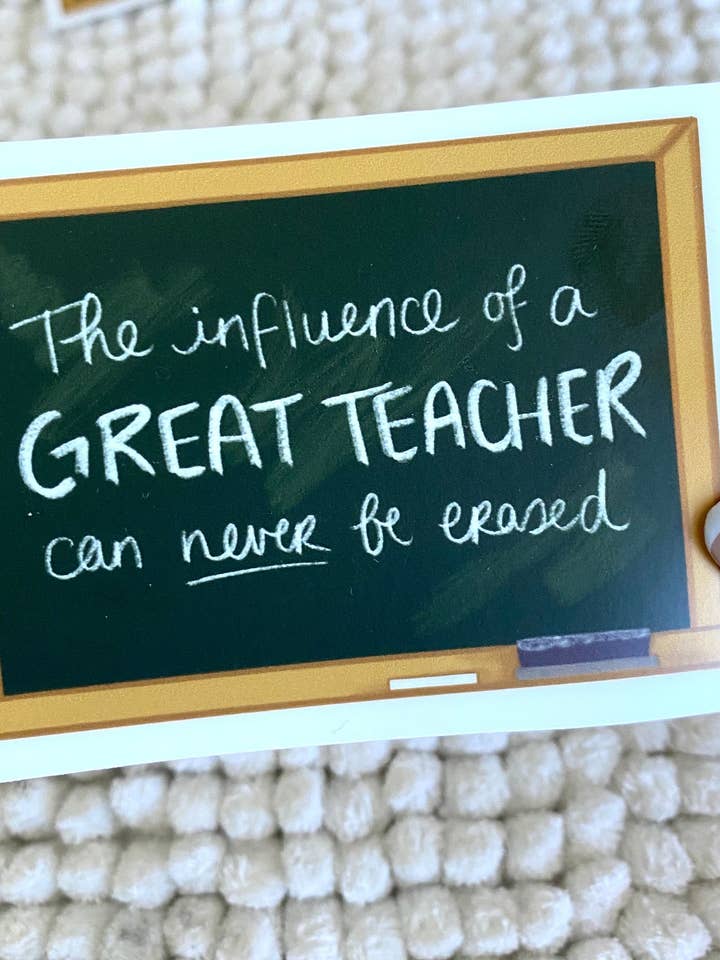 The influence of a
GREAT TEACHER
can never be erased